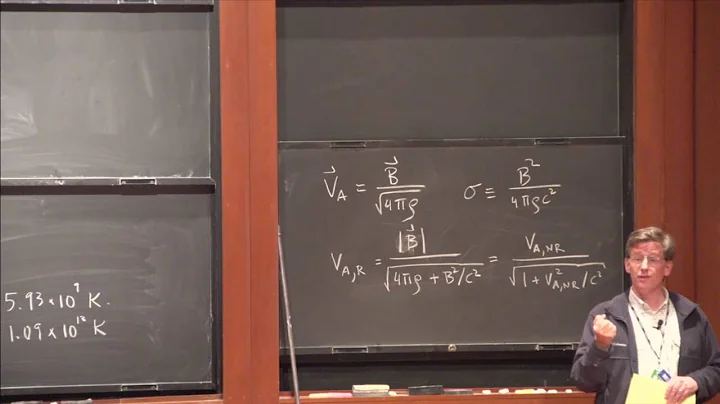 5.93 × 10⁹ K.
1.09 × 10¹² K
V⃗_A = B⃗ / √(4πρ)    σ ≡ B² / 4πρc²
V_{A,R} = |B⃗| / √(4πρ + B²/c²) = V_{A,NR} / √(1 + V²_{A,NR}/c²)